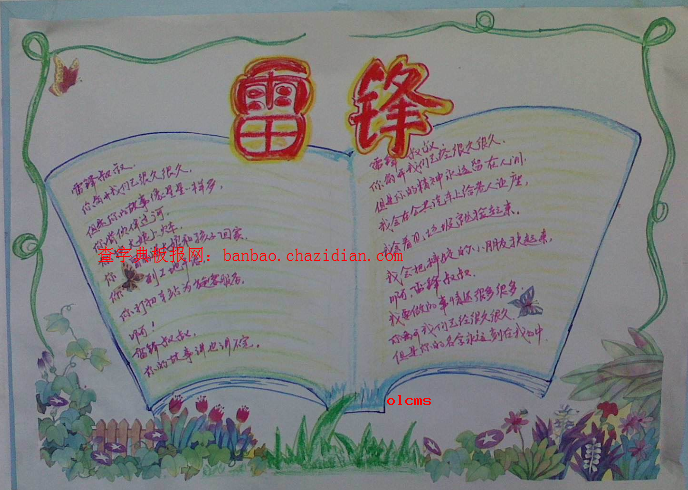 雷锋
雷锋叔叔，
你离开我们已很久很久，
但是你的故事像星星一样多，
你曾
过河，
你
和孩子回家，
查字典板报网：banbao.chazidian.com
你
到工地
啊！
雷锋叔叔，
你的故事讲也讲不完。
雷锋叔叔
你离开我们已经很久很久，
但是你的精神永远留在人间，
我会在公共汽车上给老人让座，
我会看见垃圾
捡起来，
我会把摔跤的小朋友扶起来，
啊，雷锋叔叔，
我要做的事情还很多很多，
你离开我们已经很久很久，
但是你的名字永远刻在我心中
olcms